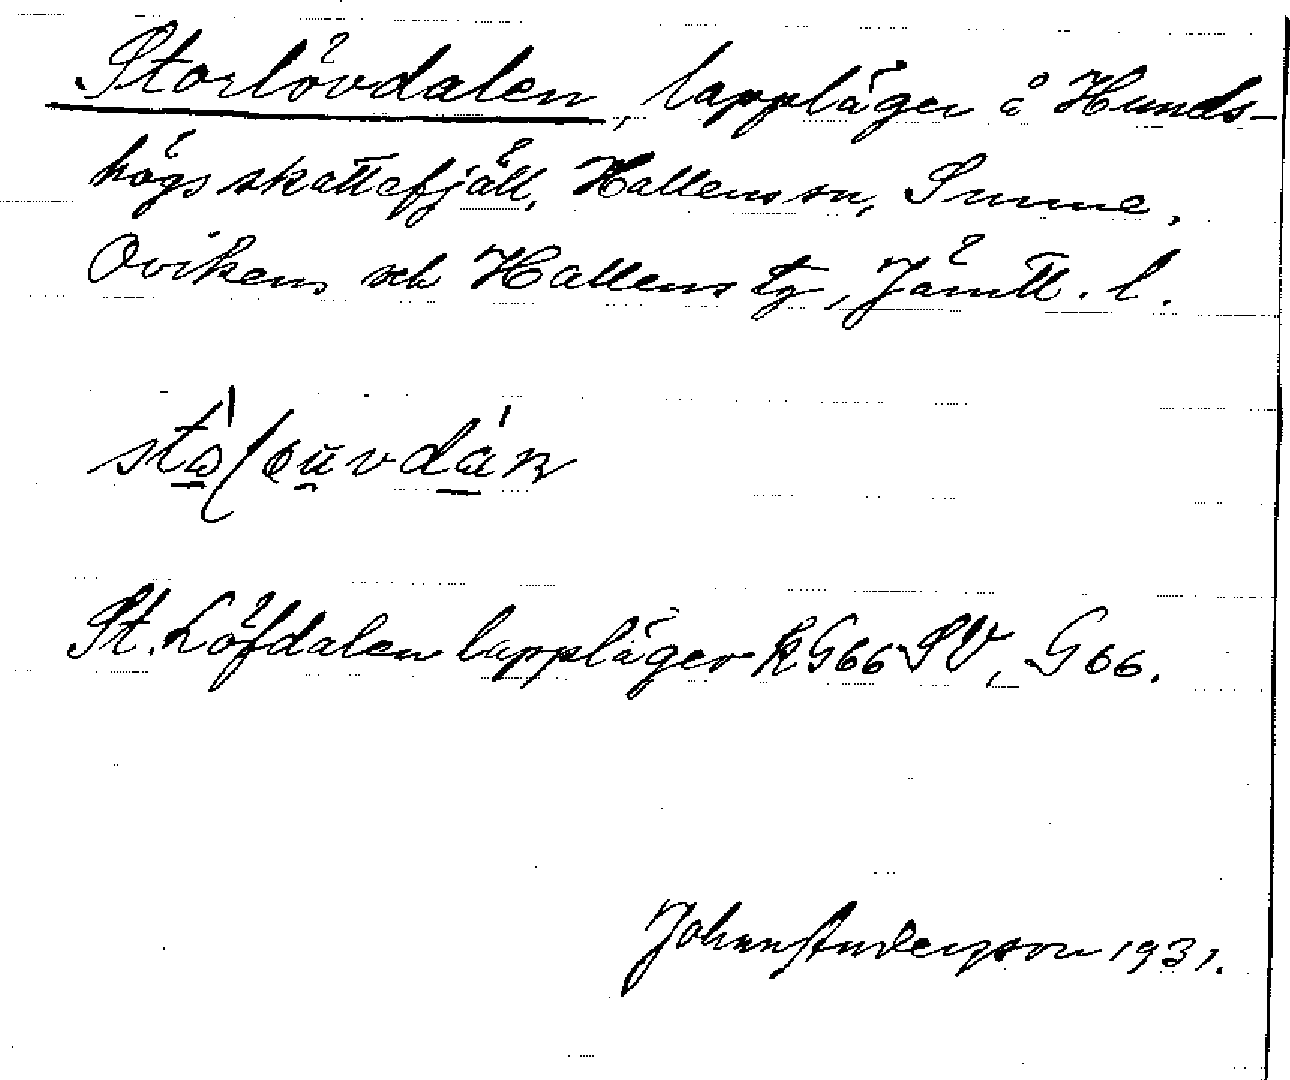 Storlövdalen, lappläger å Hunds-
högs skattefjäll, Hallens sn, Sunne,
Ovikens och Hallens tg, Jämtl. l.
St. Löfdalen lappläger k G66 SV, G 66.
Johan Anderson 1931.